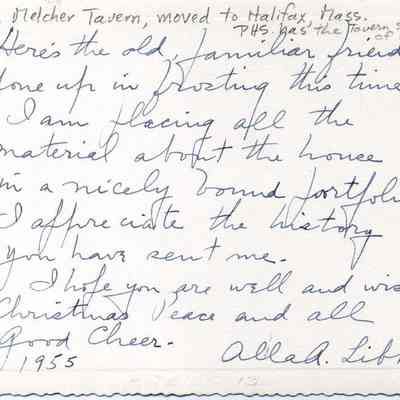 Melcher Tavern, moved to Halifax, Mass.
PHS has the Tavern s
of
Here's the old, familiar friend
done up in frosting this time
I am placing all the
material about the house
in a nicely bound portfoli
I appreciate the history
you have sent me.
I hope you are well and wis
Christmas Peace and all
Good Cheer.
1955 Alla A. Lib